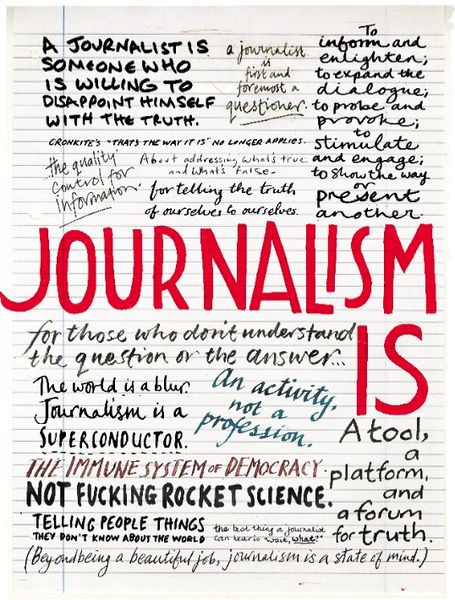 A JOURNALIST IS
SOMEONE WHO
IS WILLING TO
DISAPPOINT HIMSELF
WITH THE TRUTH.
a journalist
is
first and
foremost a
questioner.
To
inform and
enlighten;
to expand the
dialogue;
to probe and
provoke;
to
stimulate
and engage;
to show the way
or
present
another.
CRONKITE'S "THAT'S THE WAY IT IS" NO LONGER APPLIES.
the quality
control for
information.
About addressing what's true
and what's false.
for telling the truth
of ourselves to ourselves.
JOURNALISM
IS
for those who don't understand
the question or the answer...
The world is a blur.
Journalism is a
SUPERCONDUCTOR.
An activity,
not a
profession.
A tool,
a
platform,
and
a forum
for truth.
THE IMMUNE SYSTEM OF DEMOCRACY.
NOT FUCKING ROCKET SCIENCE.
TELLING PEOPLE THINGS
THEY DON'T KNOW ABOUT THE WORLD
the best thing a journalist
can hear is "wait, what?"
(Beyond being a beautiful job, journalism is a state of mind.)